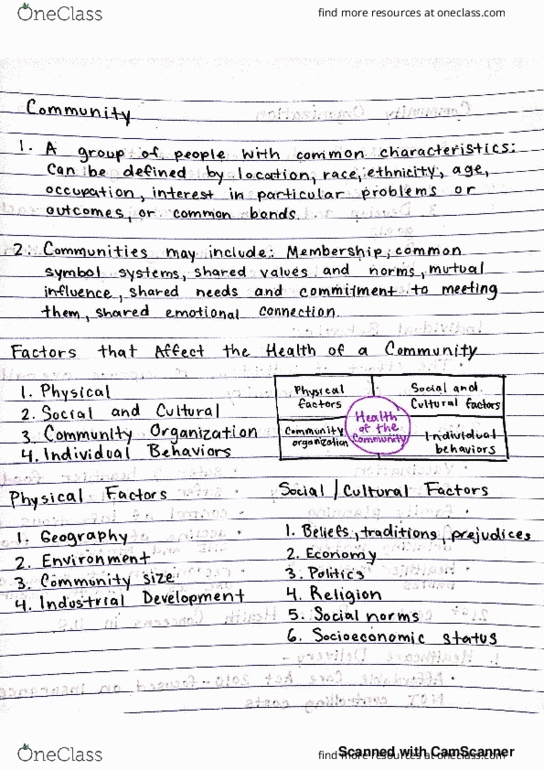 OneClass
find more resources at oneclass.com
Community
1. A group of people with common characteristics:
Can be defined by location, race, ethnicity, age,
occupation, interest in particular problems or
outcomes, or common bonds.
2. Communities may include: Membership, common
symbol systems, shared values and norms, mutual
influence, shared needs and commitment to meeting
them, shared emotional connection.
Factors that Affect the Health of a Community
1. Physical
2. Social and Cultural
3. Community Organization
4. Individual Behaviors
Physical
factors
Social and
Cultural factors
Health
of the
Community
Community
organization
Individual
behaviors
Physical Factors
1. Geography
2. Environment
3. Community size
4. Industrial Development
Social/Cultural Factors
1. Beliefs, traditions, prejudices
2. Economy
3. Politics
4. Religion
5. Social norms
6. Socioeconomic status
OneClass
find more resources at oneclass.com
Scanned with CamScanner